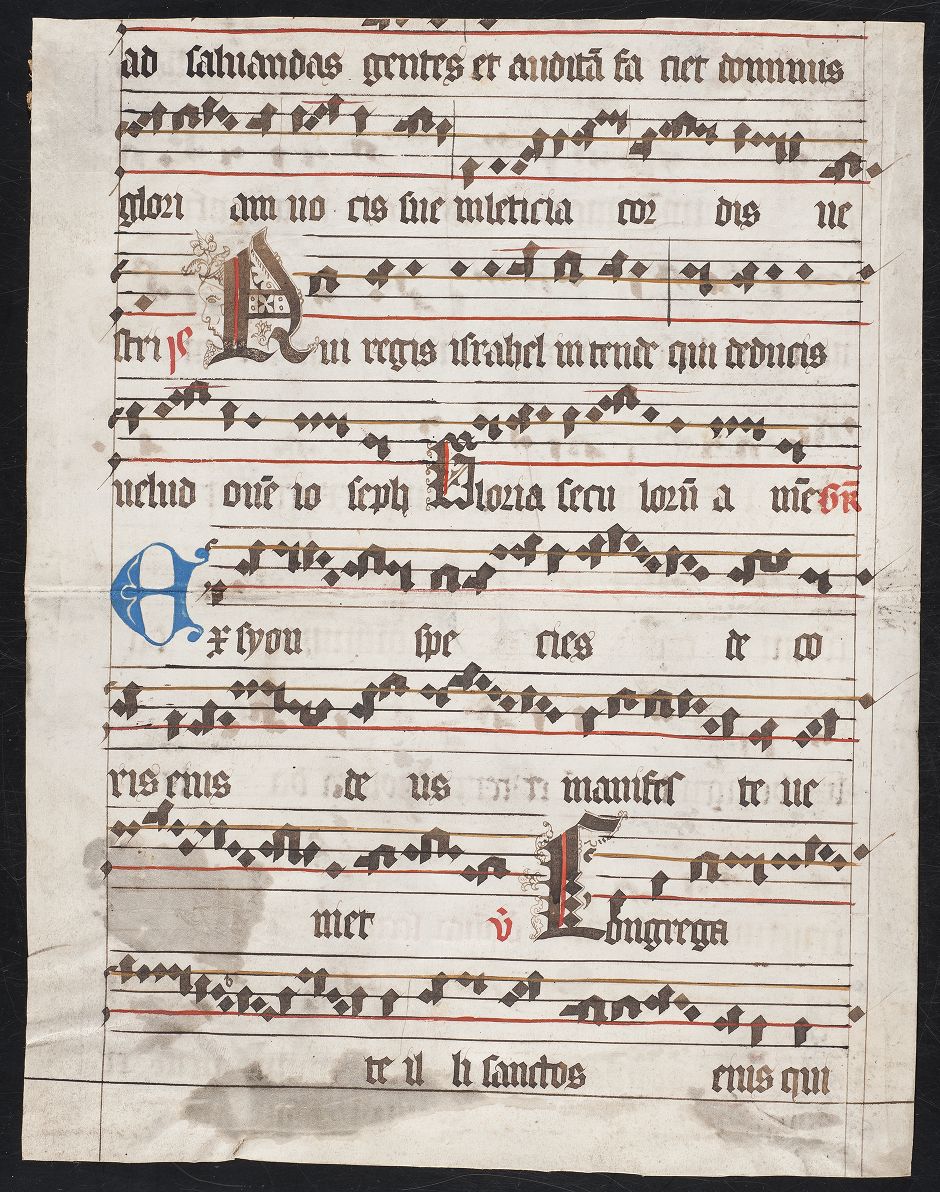 ad saluandas gentes et auditā fa ciet dominus
glori am uo cis sue inleticia cor dis ue
stri ps Qui regis israhel in tende qui deducis
uelud ouē io seph Gloria secu lorū a mē GR
Ex syon spe cies de co
ris eius de us manifes te ue
niet v̄ Congrega
te il li sanctos eius qui